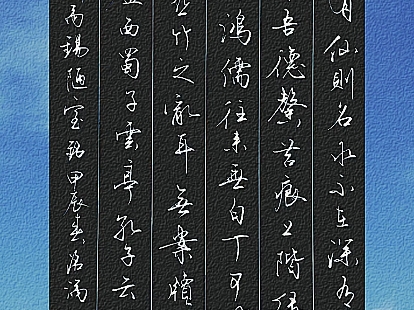 有仙則名水不在深有
吾德馨苔痕上階
鴻儒往来無白丁可
竹之亂耳無案牘
西蜀子雲亭孔子云
禹錫陋室銘甲辰春